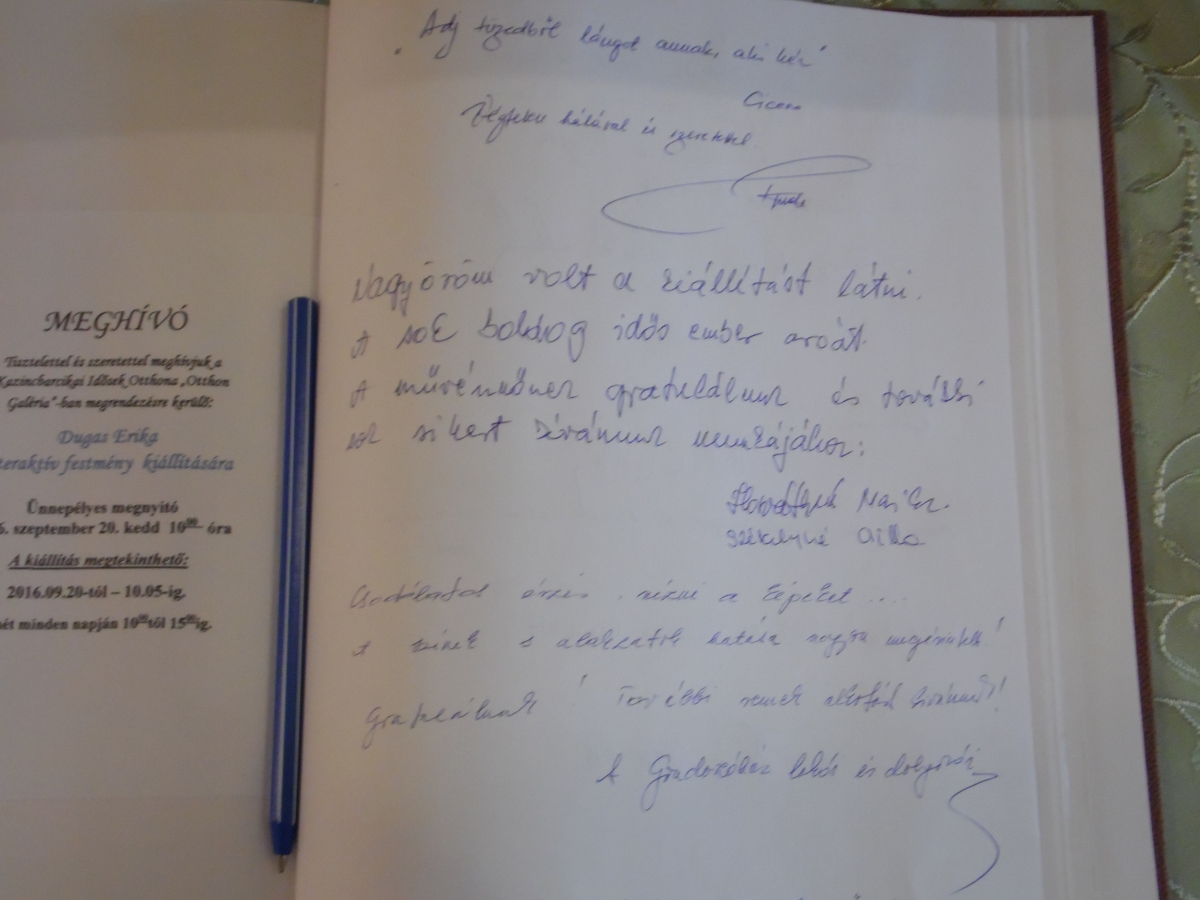 MEGHÍVÓ
Tisztelettel és szeretettel meghívjuk a
Kazincbarcikai Idősek Otthona „Otthon
Galéria"-ban megrendezésre kerülő:
Dugas Erika
teraktív festmény kiállítására
Ünnepélyes megnyitó
6. szeptember 20. kedd 10⁰⁰ óra
A kiállítás megtekinthető:
2016.09.20-tól – 10.05-ig.
hét minden napján 10⁰⁰tól 15⁰⁰ig.
„Adj tüzedből lángot annak, aki kér"
Cicero
Végtelen hálával és szeretettel
Nagy öröm volt a kiállítást látni.
A sok boldog idős ember arcát.
A művésznőnek gratulálunk és további
sok sikert kívánunk munkájához:
Székelyné
Csodálatos érzés nézni a képeket ....
A színek s alakzatok hatása nagyon megérintett!
Gratulálunk! További remek alkotást kívánunk!
A Gondozóház lakói és dolgozói